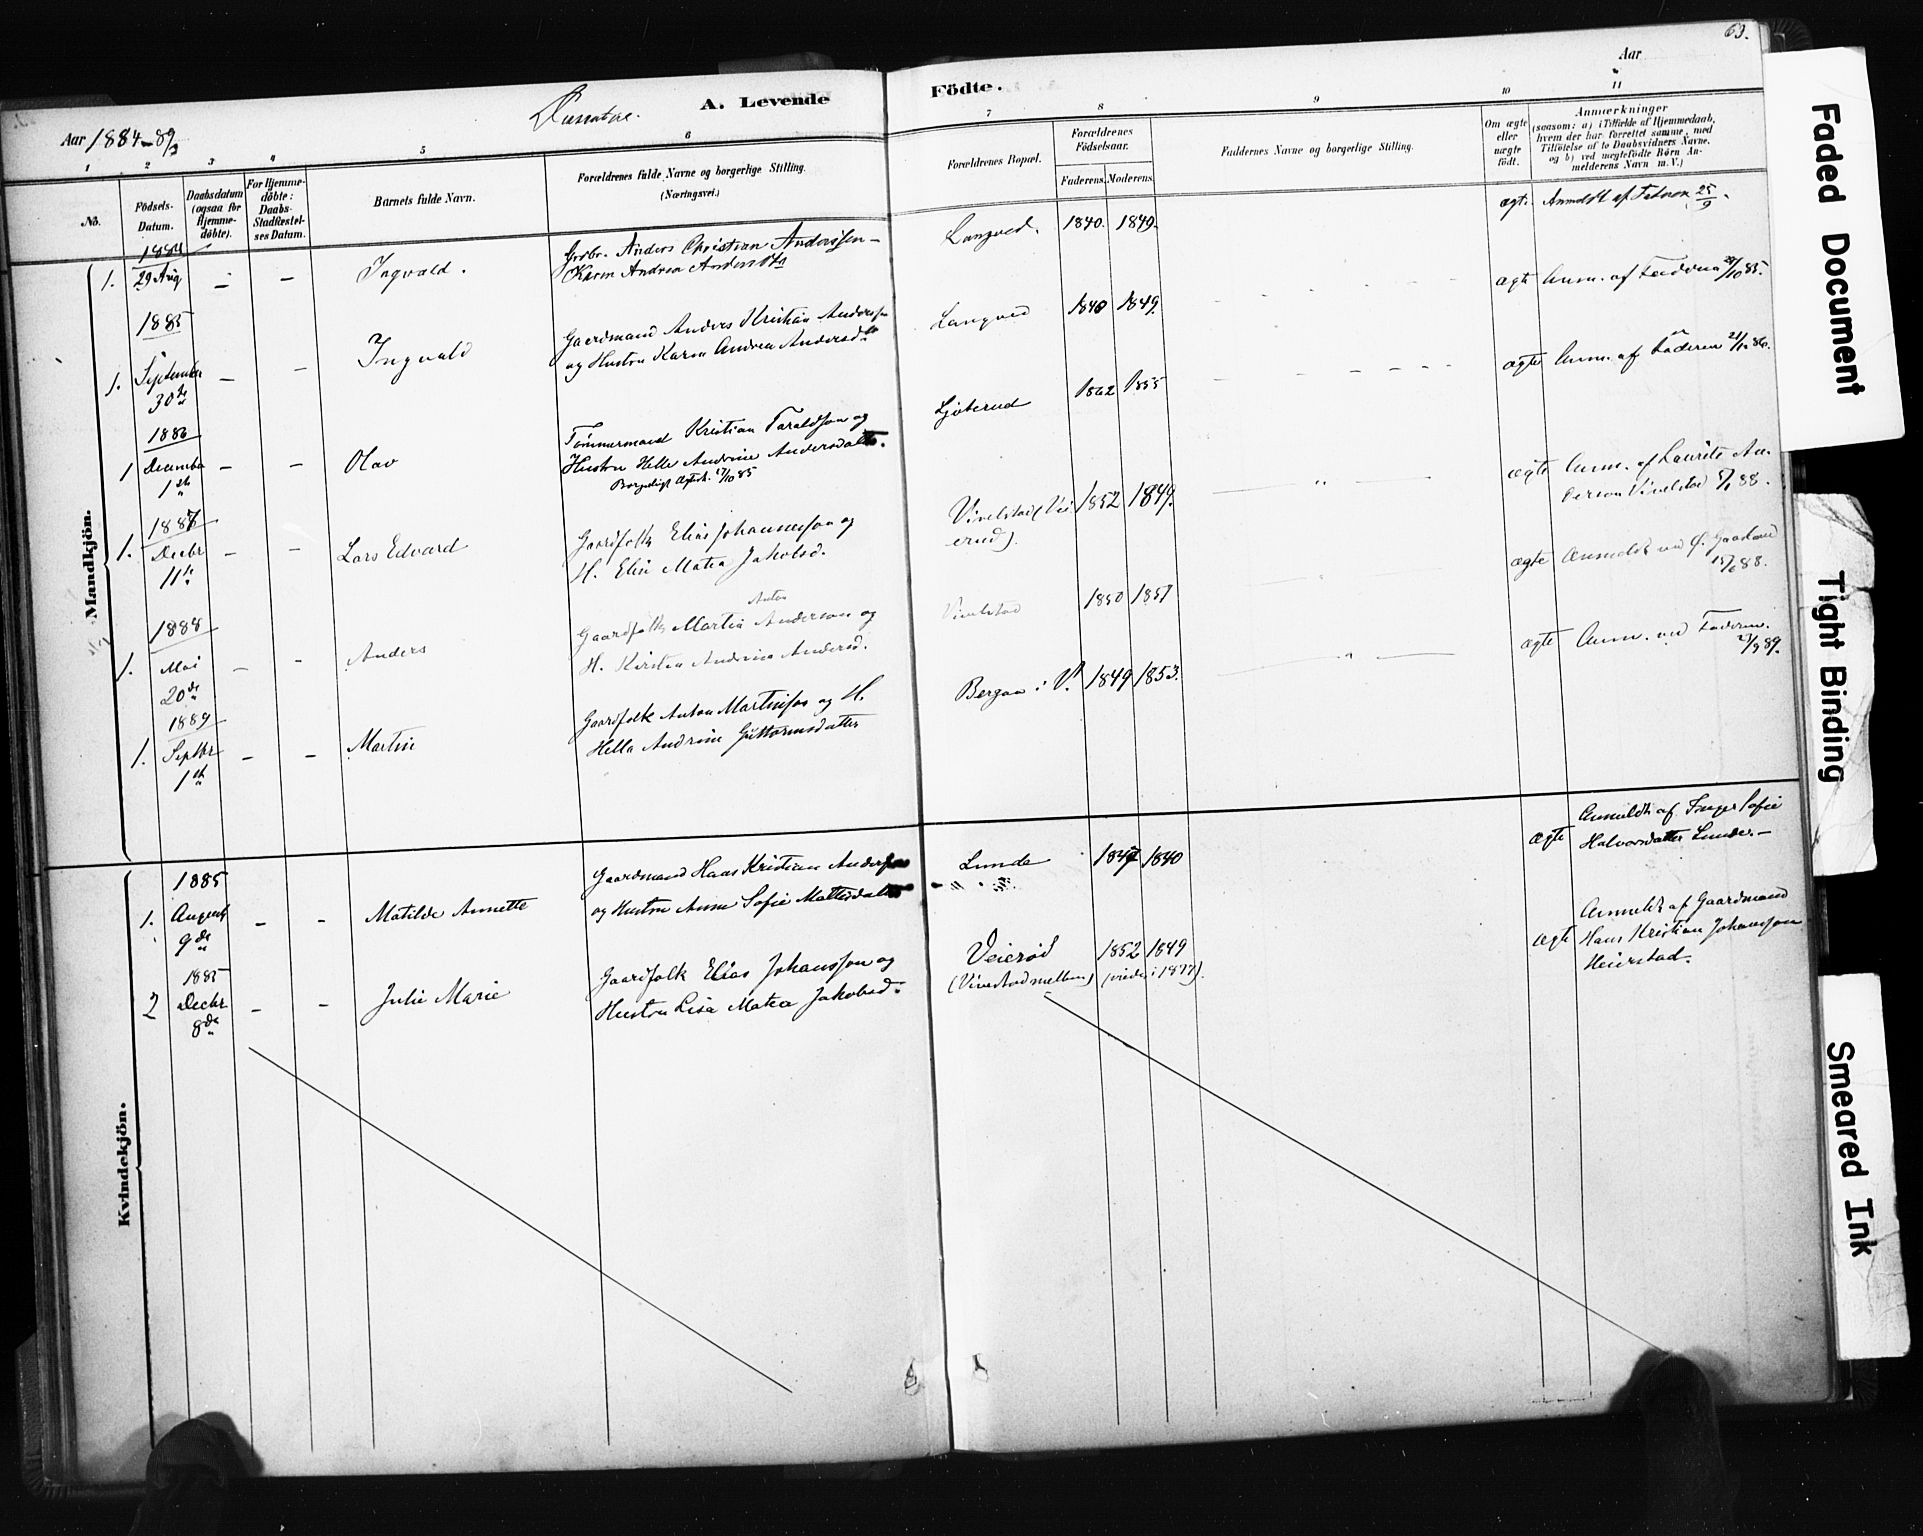 63.
Aar 1884-89
A. Levende Födte.
Aar
1 2 3 4 5 6 7 8 9 10 11
No.
Födsels-Datum.
Daabsdatum (ogsaa for Hjemme-döbte).
For Hjemme-döbte: Daabs-Stadfæstel-ses Datum.
Barnets fulde Navn.
Forældrenes fulde Navne og borgerlige Stilling. (Næringsvei.)
Forældrenes Bopæl.
Forældrenes Födselsaar.
Faderens. Moderens.
Faddernes Navne og borgerlige Stilling.
Om ægte eller uægte födt.
Anmærkninger (saasom: a) i Tilfælde af Hjemmedaab, hvem der har forrettet samme, med Tilföielse af to Daabsvidners Navne, og b) ved uægtefödte Börn An-melderens Navn m. V.)
Mandkjön.
1884
1. 29 Aug – – Ingvald. Grdbr. Anders Christian Anderssen –
Karen Andrea Andersdtr
Langved. 1840. 1849. ægte Anmeldt af Faderen 25/9.
1885
1. September 30te – – Ingvald Gaardmand Anders Kristian Anderssen
og Hustru Karen Andrea Andersdtr
Langved 1840 1849. ægte Anm. af Faderen /10 85.
1886
1 December 1ste – – Olav Tømmermand Kristian Taraldsson og
Hustru Helle Andrine Andersdatter.
Borgerligt ægtesk. 17/10 85
Ljøterud 1862 1855 ægte Anm. af Faderen 21/12 86.
1887
1. Decbr 11te – – Lars Edvard Gaardfolk Elias Johannesson og
H. Elin Matea Jakobsd.
Vivelstad (Vei-
erud). 1852 1849. ægte Anm. af Laurits An-
derson Vivelstad /1 88.
1888
1. Mai 20de – – Anders Gaardfolk Martin Anton Anderson og
H. Kirsten Andrine Andersd.
Vivelstad 1850 1857 ægte Anmeldt ved Gaarden
15/6 88.
1889
1. Septbr 1ste – – Martin Gaardfolk Anton Martinson og H.
Hella Andrine Guttormsdatter
Bergan i V. 1849 1853. ægte Anm. ved Faderen.
27/9 89.
Kvindekjön.
1885
1. August 9de – – Matilde Annette Gaardmand Hans Kristian Anderson
og Hustru Anne Sofie Mathisdatter
Lunde 1847 1840 ægte Anmeldt af Inger Sofie
Halvorsdatter Lunde. –
1885
2 Decbr 8de – – Julie Marie Gaardfolk Elias Johansson og
Hustru Lisa Matea Jakobsd.
Veierød
(Vivestad mellem) 1852 1849
(viede i 1877). ægte Anmeldt af Gaardmand
Hans Kristian Johansson
Heierstad.
Faded Document
Tight Binding
Smeared Ink